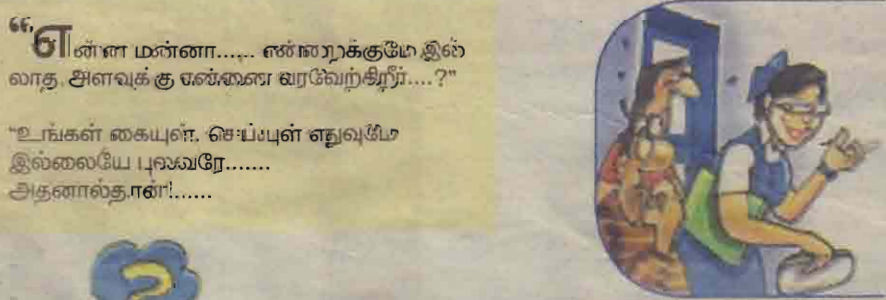 “என்ன மன்னா...... என்றைக்குமே இல்
லாத அளவுக்கு என்னை வரவேற்கிறீர்....?”
“உங்கள் கையுள் செய்யுள் எதுவுமே
இல்லையே புலவரே.......
அதனால்தான்!......